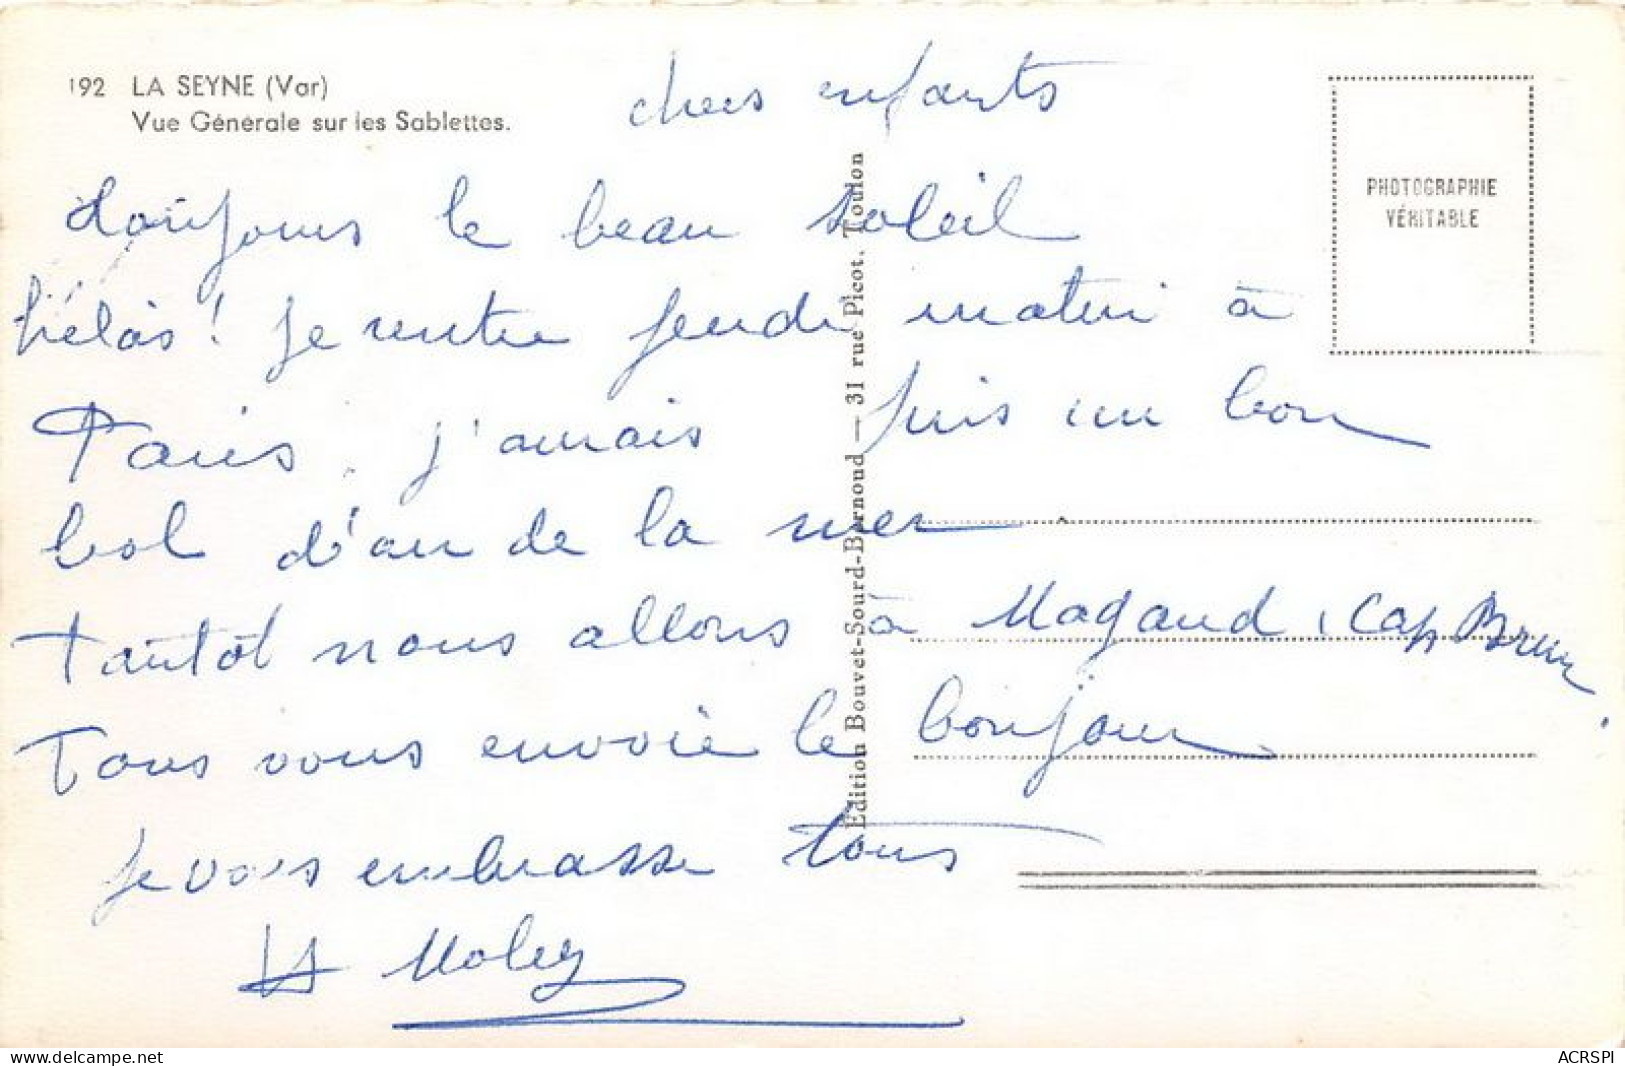 192 LA SEYNE (Var)
Vue Générale sur les Sablettes.
chers enfants
toujours le beau soleil
hélas! je rentre jeudi matin à
Paris. j'aurais pris un bon
bol d'air de la mer
Tantôt nous allons à Magaud, Cap Brun.
Tous vous envoie le bonjour
je vous embrasse tous
Edition Bouvet-Sourd-Bernoud — 31 rue Picot, Toulon
PHOTOGRAPHIE
VÉRITABLE
delcampe.net
ACRSPI